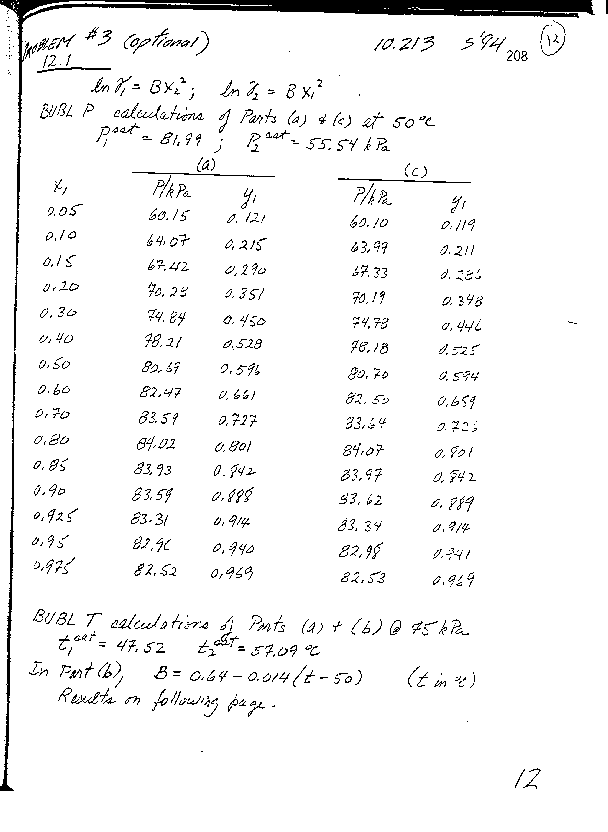 PROBLEM #3 (optional) 10.213 S'94 208 12
12.1
ln γ₁ = Bx₂²; ln γ₂ = Bx₁²
BUBL P calculations of Parts (a) & (c) at 50°C
P₁ˢᵃᵗ = 81.99; P₂ˢᵃᵗ = 55.54 kPa
(a) (c)
x₁ P/kPa y₁ P/kPa y₁
0.05 60.15 0.121 60.10 0.119
0.10 64.07 0.215 63.99 0.211
0.15 67.42 0.290 67.33 0.286
0.20 70.28 0.351 70.19 0.348
0.30 74.84 0.450 74.78 0.446
0.40 78.21 0.528 78.18 0.525
0.50 80.69 0.596 80.70 0.594
0.60 82.47 0.661 82.50 0.659
0.70 83.59 0.727 83.64 0.726
0.80 84.02 0.801 84.07 0.801
0.85 83.93 0.842 83.97 0.842
0.90 83.59 0.888 83.62 0.889
0.925 83.31 0.914 83.34 0.914
0.95 82.96 0.940 82.98 0.941
0.975 82.52 0.969 82.53 0.969
BUBL T calculations of Parts (a) + (b) @ 75 kPa
t₁ˢᵃᵗ = 47.52 t₂ˢᵃᵗ = 57.09 °C
In Part (b), B = 0.64 - 0.014 (t - 50) (t in °C)
Results on following page.
12